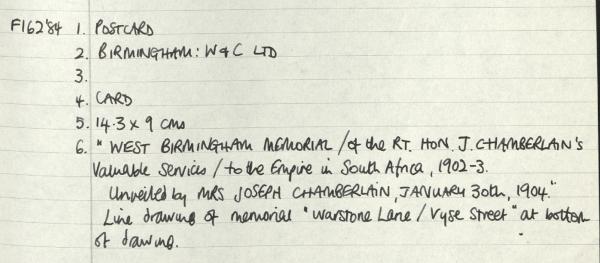 F162'84 1. POSTCARD
2. BIRMINGHAM: W&C LTD
3.
4. CARD
5. 14.3 x 9 cms
6. " WEST BIRMINGHAM MEMORIAL / of the RT. HON. J. CHAMBERLAIN'S
Valuable Services / to the Empire in South Africa, 1902-3.
Unveiled by MRS JOSEPH CHAMBERLAIN, JANUARY 30th, 1904."
Line drawing of memorial "Warstone Lane / Vyse Street" at bottom
of drawing.